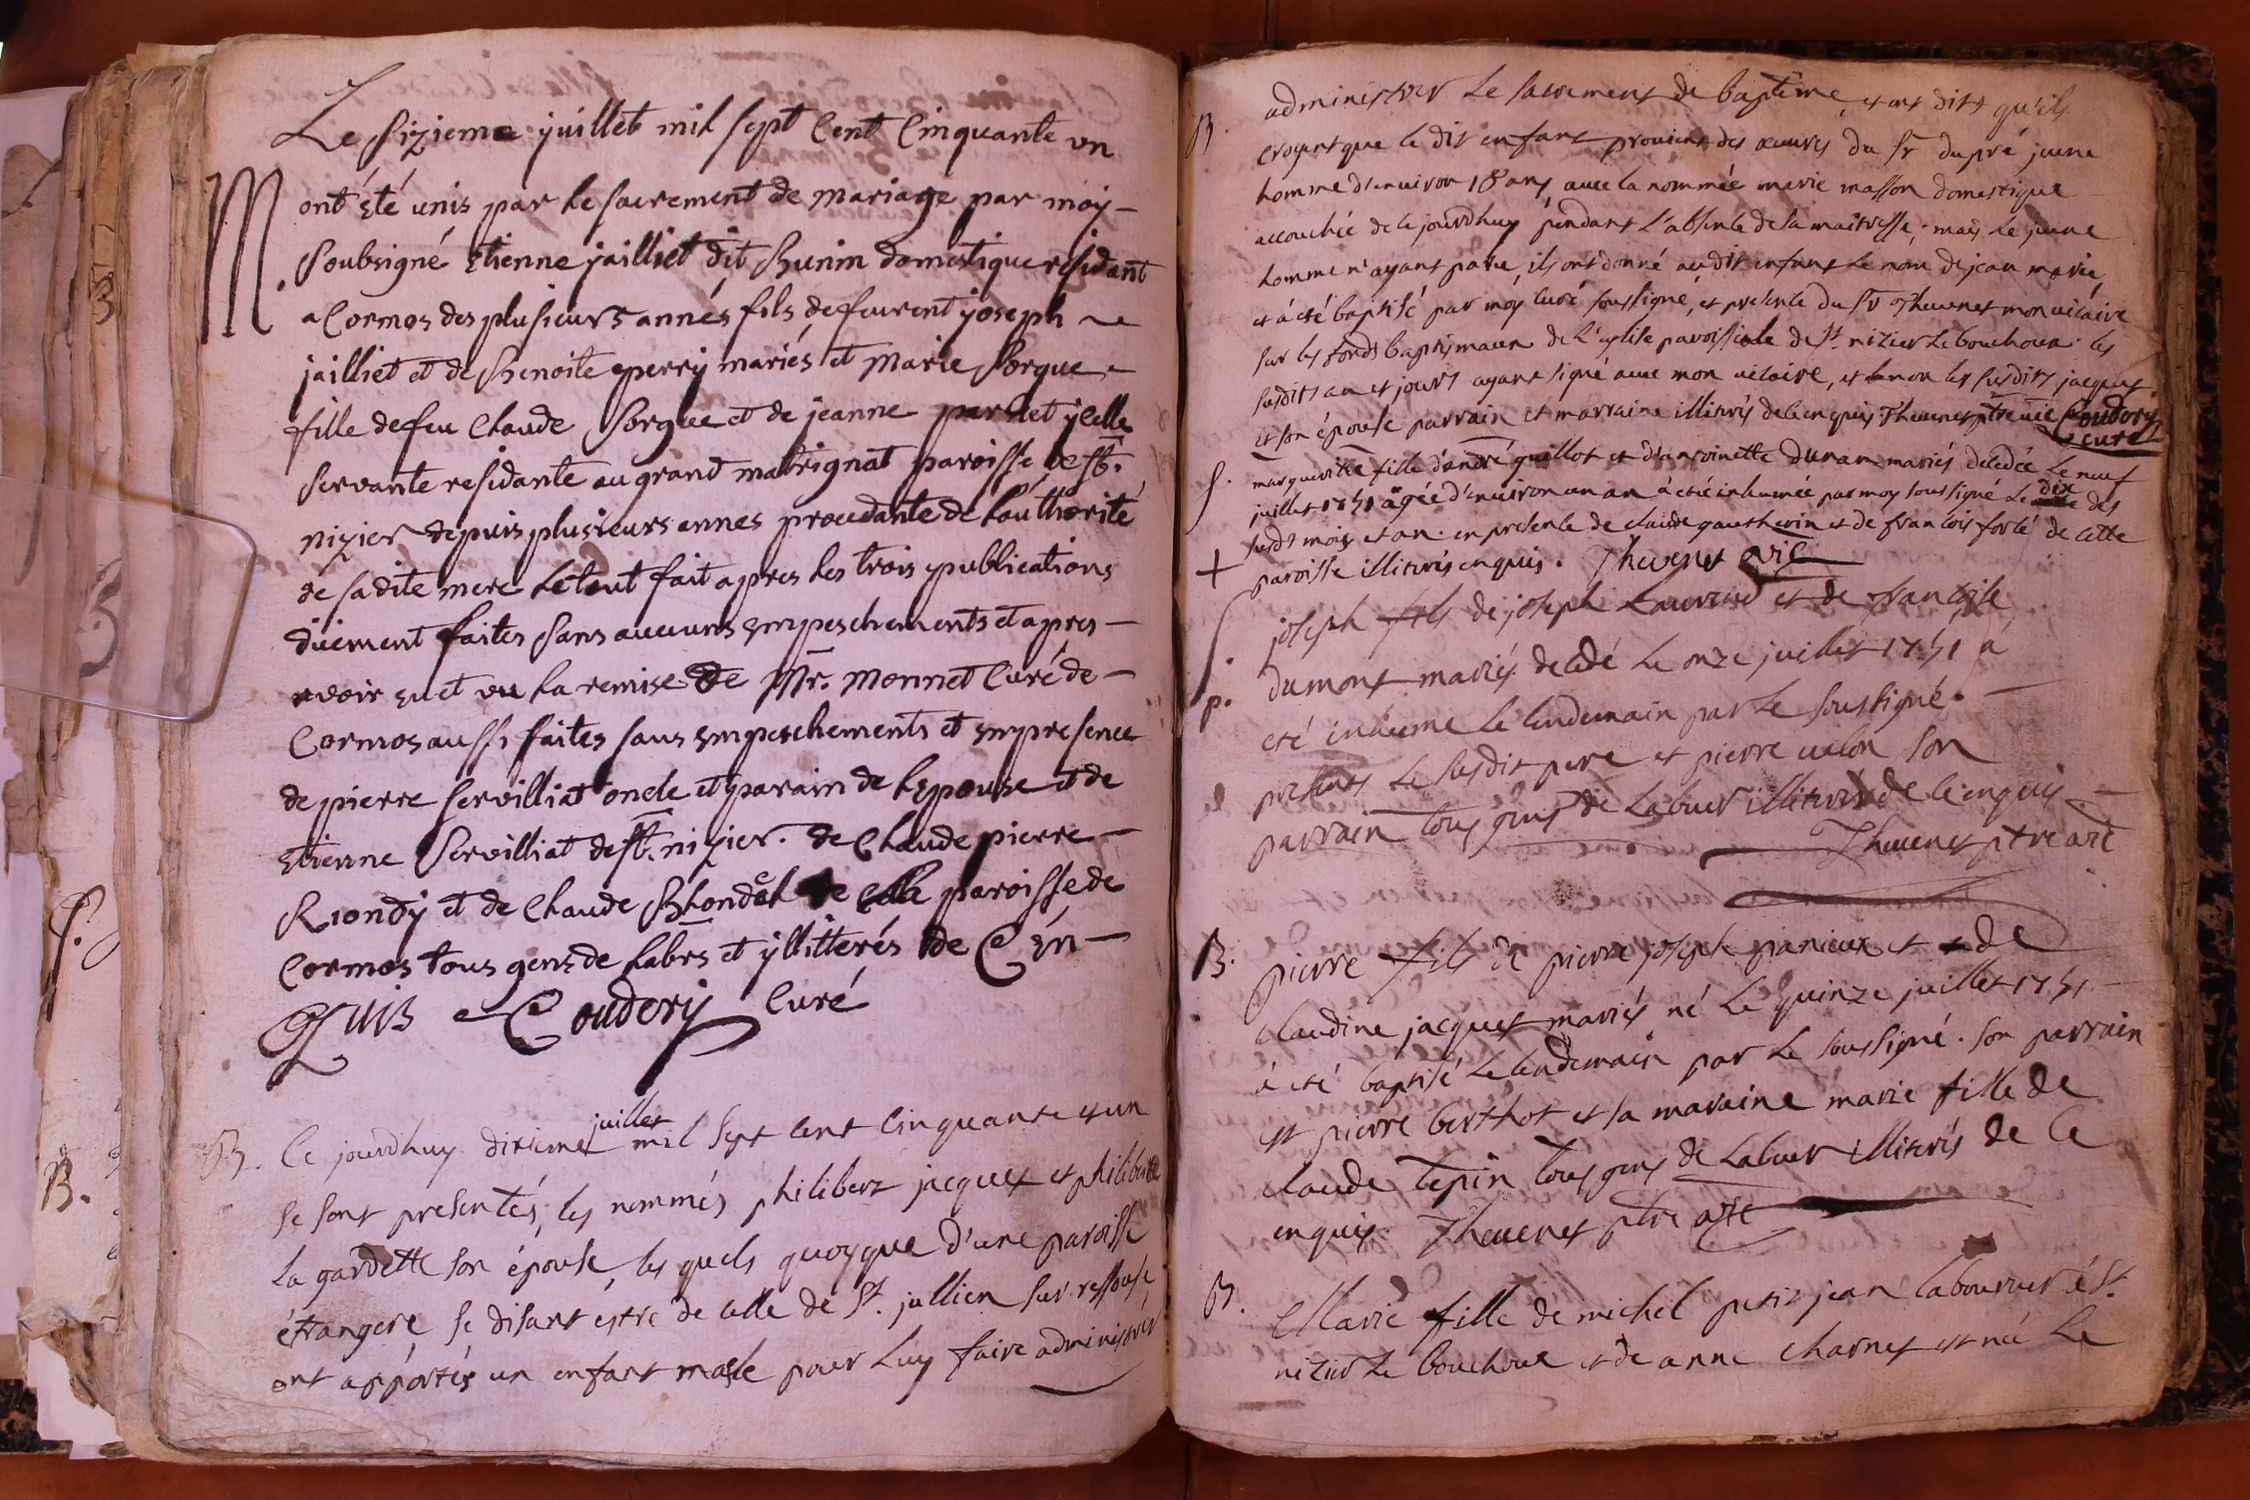 Le sizieme juillet mil sept Cent Cinquante un
M. ont été unis par le sacrement de mariage par moy
soubsigné Etienne jailliet dit Burin domestique residant
a Cormos des plusieurs annés fils defeurent joseph
jailliet et de Benoite perry mariés et Marie Sorgue
fille defeu Claude Sorgue et de jeanne
servante residante au grand matrignat paroisse de st.
nizier depuis plusieurs annes procedante de l'authorité
de sadite mere le tout fait apres les trois publications
duement faites sans aucuns empeschements et apres
avoir eu et vu la remise de Mr. Monnet Curé de
Cormos aussi faites sans empeschements et en presence
de pierre servilliat oncle et parain de l'epouse et de
Etienne Servilliat de st. nizier. de Claude pierre
Riondy et de Claude Blondel de paroisse de
Cormos tous gens de labrs et yllitterés de Ce en
quis Coudery Curé
B. Ce jourdhuy dixieme juillet mil sept cent cinquante et un
se sont presentés, les nommés philibert jacquet et philiberte
la gardette son épouse, les quels quoyque d'une paroisse
étrangere se disant estre de celle de St. jullien sur ressouse
ont apportés un enfant masle pour luy faire administrer
B. administrer le sacrement de baptême et ont dits qu'ils
croyent que le dit enfant provient des œuvres du sr dupré jeune
homme d'environ 18 ans avec la nommée marie masson domestique
accouchée de ce jourdhuy pendant l'absence de sa maitresse; mais le jeune
homme n'ayant paru, ils ont donné audit enfant le nom de jean marie,
et à été baptisé par moy curé soussigné, et presence du sr Thevenet mon vicaire
sur les fonds baptismaux de l'eglise paroissiale de St. nizier le bouchoux les
susdits an et jours ayant signé avec mon vicaire, et non les susdits jacquet
et son épouse parrain et marraine illiterés de ce enquis Thevenet ptre vic Coudery
curé
S. marguerite fille d'andré guillot et d'antoinette Duran mariés decedée le neuf
juillet 1751 âgée d'environ un an à eté inhumée par moy soussigné le dix des
susds mois et an. en presence de claude gautherin et de francois forté de cette
+ paroisse illiterés enquis. Thevenet vic
S. joseph fils de joseph Laurent et de francoise
p. dumont mariés decedé le onze juillet 1751 à
eté inhumé le lendemain par le soussigné.
presents le susdit pere et pierre velon son
parrain tous gens de labeur illiterés de ce enquis
Thevenet ptre vic
B. pierre fils de pierre joseph panieux et de
claudine jacquet mariés né le quinze juillet 1751
à eté baptisé le lendemain par le soussigné. son parrain
est pierre berthot et sa maraine marie fille de
claude tepin tous gens de labeur illiterés de ce
enquis. Thevenet ptre vic
B. Marie fille de michel petit jean laboureur à St.
nizier le bouchoux et de anne charnet est née le
B.
S.